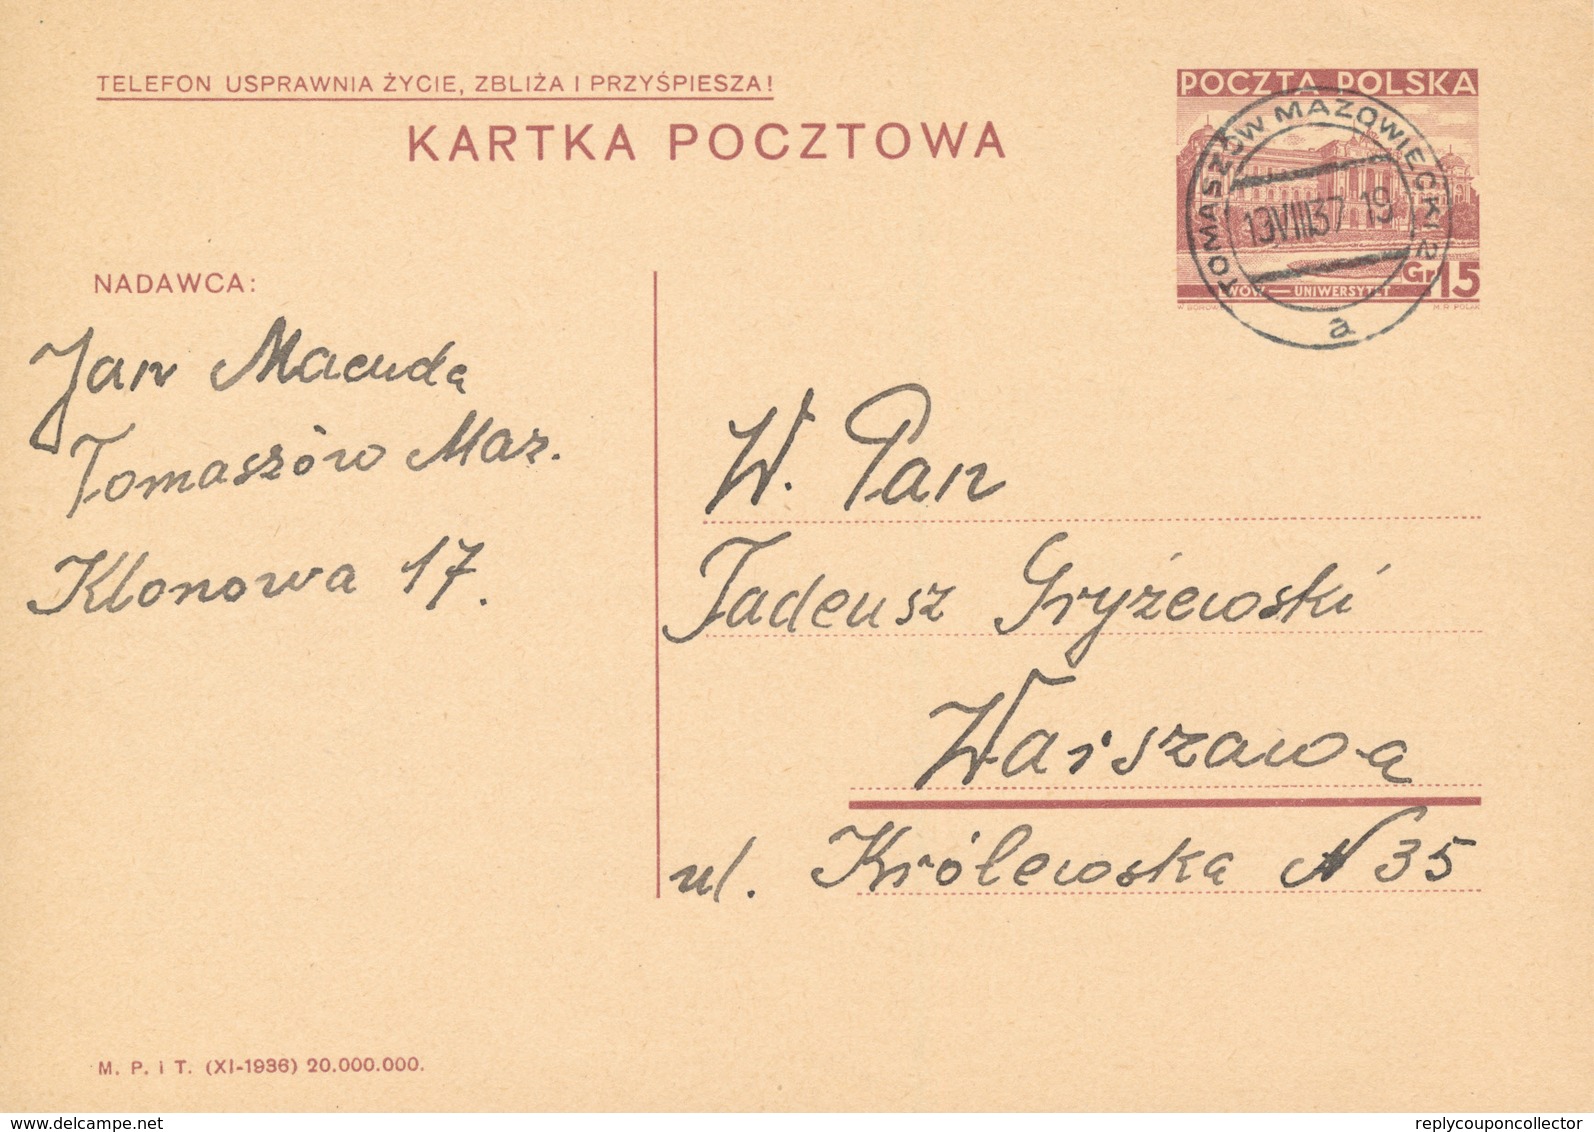 TELEFON USPRAWNIA ŻYCIE, ZBLIŻA I PRZYŚPIESZA!
KARTKA POCZTOWA
POCZTA POLSKA
TOMASZÓW MAZOWIECKI 2
13 VIII 37 19
Gr 15
WÓW — UNIWERSYTET
M.R. POLAK
a
NADAWCA:
Jan Macuda
Tomaszów Maz.
Klonowa 17.
W. Pan
Tadeusz Gryżewski
Warszawa
ul. Królewska N 35
M. P. i T. (XI-1936) 20.000.000.
delcampe.net
replycouponcollector